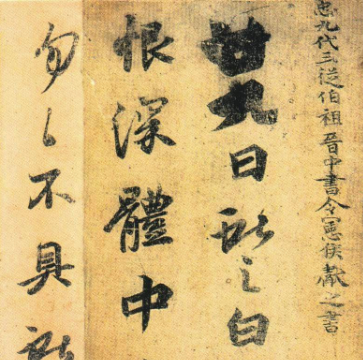 臣九代三從伯祖晉中書令憲侯獻之書
廿九日獻之白
恨深體中
匆匆不具獻